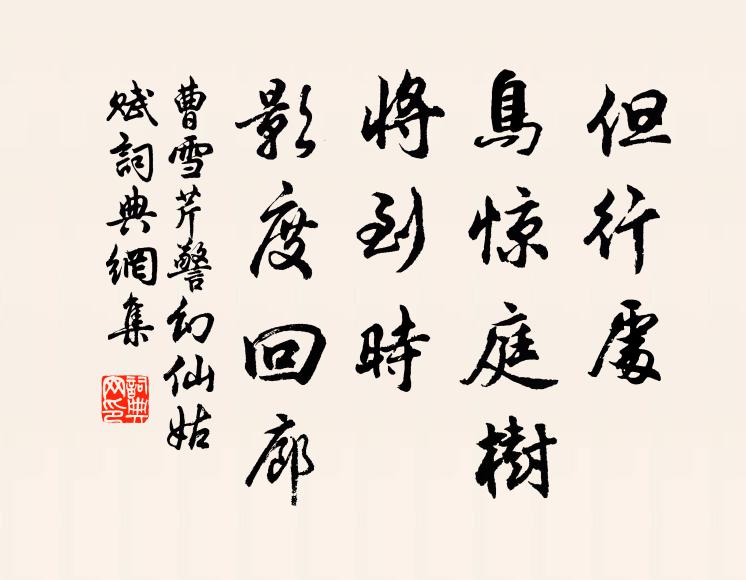 但行處
鳥惊庭樹
將到時
影度回廊
曹雪芹警幻仙姑
賦詞典網集
詞典網印